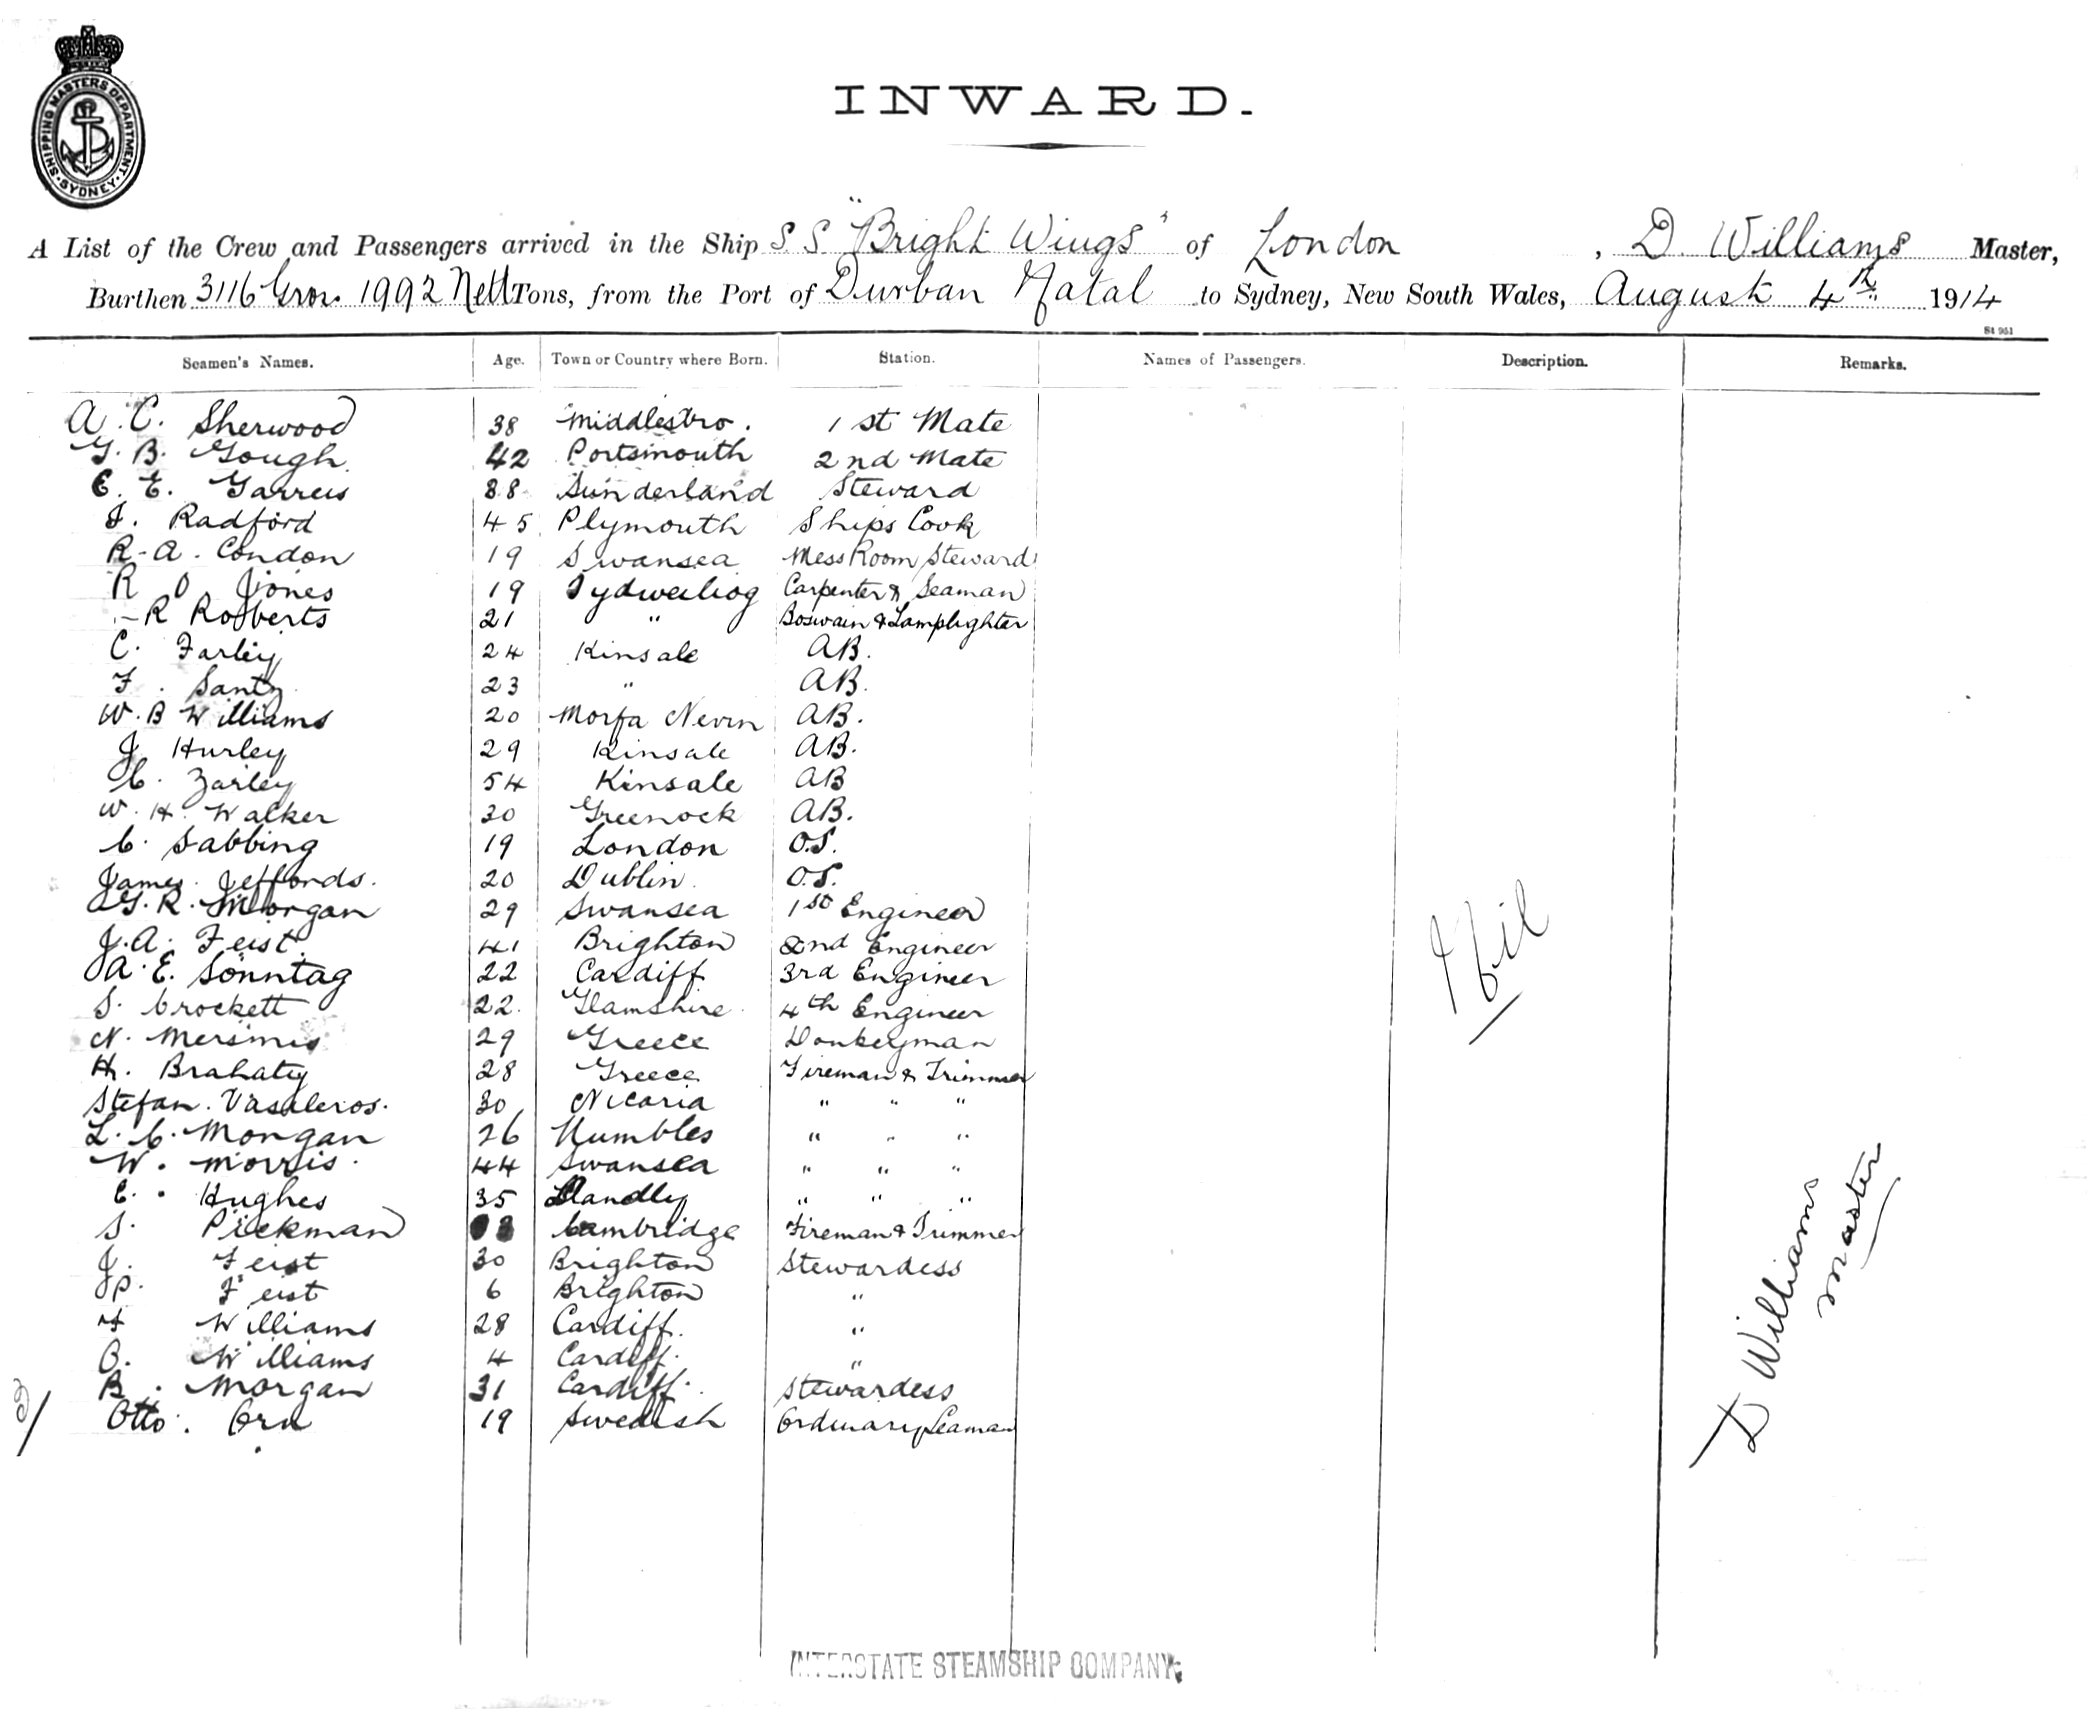 SHIPPING MASTERS DEPARTMENT. SYDNEY
INWARD.
A List of the Crew and Passengers arrived in the Ship S S "Bright Wings" of London, D. Williams Master,
Burthen 3116 Gross. 1992 Nett Tons, from the Port of Durban Natal to Sydney, New South Wales, August 4th 1914
St 951
Seamen's Names. Age. Town or Country where Born. Station. Names of Passengers. Description. Remarks.
A. C. Sherwood 38 Middlesbro. 1st Mate
G. B. Gough 42 Portsmouth 2nd Mate
E. E. 38 Sunderland Steward
J. Radford 45 Plymouth Ships Cook
R. A. Condon 19 Swansea Mess Room Steward
R O Jones 19 Carpenter & Seaman
R Roberts 21 " Boswain & Lamplighter
C. Farley 24 Kinsale AB.
F. Santy 23 " AB.
W. B Williams 20 Morfa Nevin AB.
J Hurley 29 Kinsale AB.
C. Farley 54 Kinsale AB
W. H. Walker 30 Greenock AB.
C. Sabbing 19 London O.S.
James Jeffords. 20 Dublin O.S.
G. R. Morgan 29 Swansea 1st Engineer
J. A. Feist. 41 Brighton 2nd Engineer
A. E. Sonntag 22 Cardiff 3rd Engineer
S. Crockett 22. Glamshire 4th Engineer
N. Mersinis 29 Greece Donkeyman
H. Brahaty 28 Greece Fireman & Trimmer
Stefan. Vasileros. 30 Nicaria " " "
L. C. Morgan 26 Mumbles " " "
W. Morris. 44 Swansea " " "
E. Hughes 35 Llandly " " "
S. Pickman Cambridge Fireman & Trimmer
J. Feist 30 Brighton Stewardess
P. Feist 6 Brighton "
Williams 28 Cardiff. "
O. Williams 4 Cardiff. "
B. Morgan 31 Cardiff. Stewardess
Otto. Orn 19 Swedish Ordinary Seaman
Nil
D Williams
Master
INTERSTATE STEAMSHIP COMPANY,